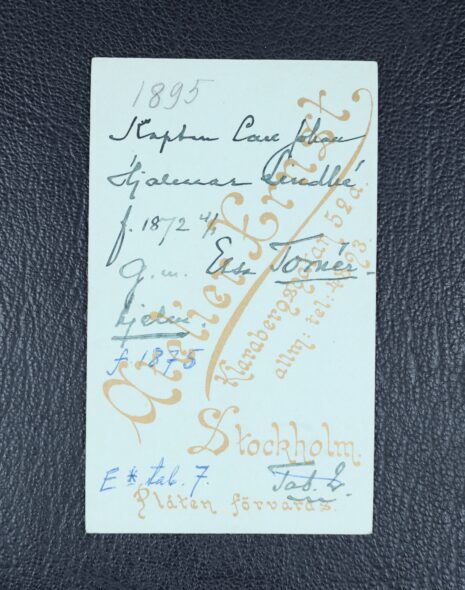 1895
Kapten Carl Johan
Hjalmar Lindhé
f. 1872
g.m. Elsa Tornér-
hjelm.
f 1875
Ateljer Ernst
Klarabergsgatan 52a.
allm: tel:
Stockholm.
E tab. 7.
Tab.
Plåten förvaras.